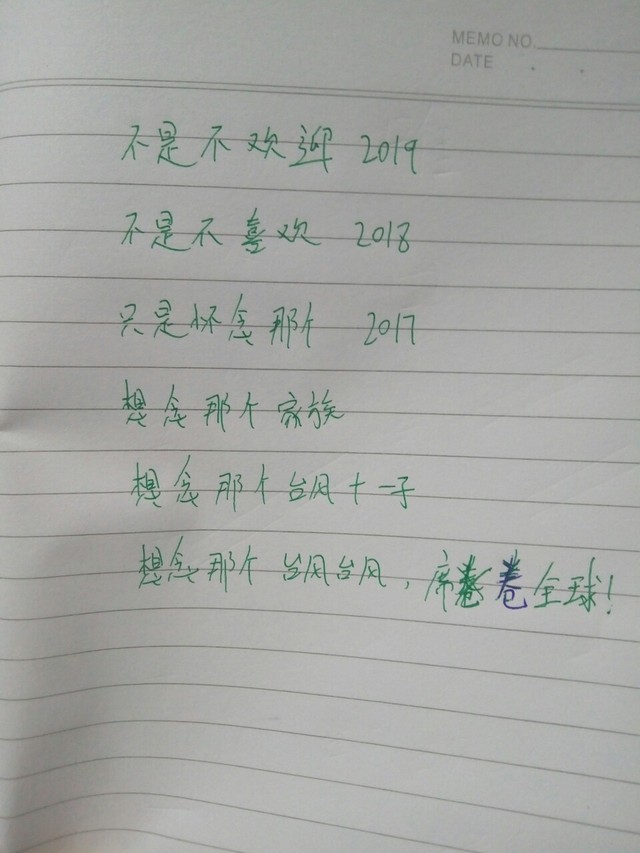 MEMO NO.
DATE . .
不是不欢迎 2019
不是不喜欢 2018
只是怀念那个 2017
想念那个家族
想念那个台风十一子
想念那个台风台风，席卷全球！